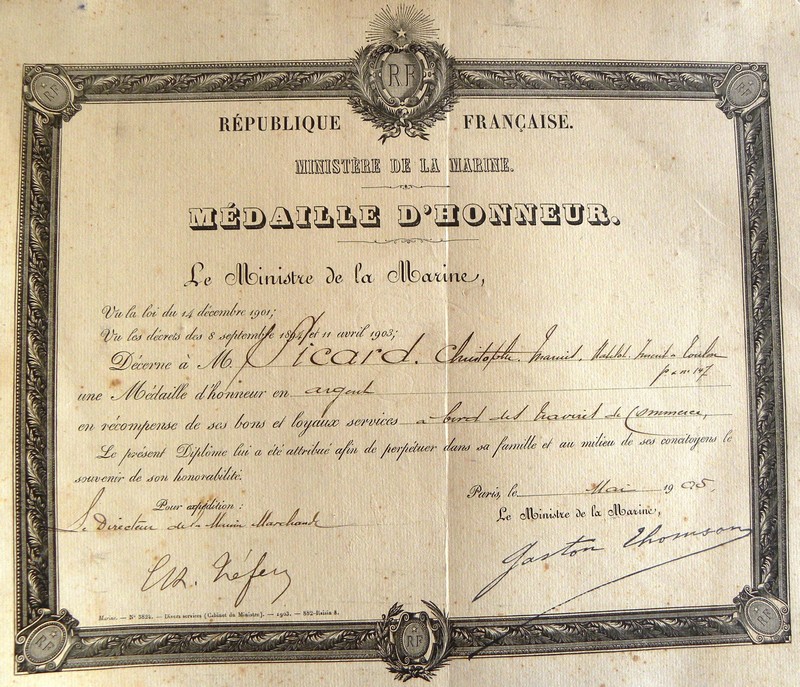 RF
RF
RF
RÉPUBLIQUE FRANÇAISE.
MINISTÈRE DE LA MARINE.
MÉDAILLE D'HONNEUR.
Le Ministre de la Marine,
Vu la loi du 14 décembre 1901;
Vu les décrets des 8 septembre 1894 et 11 avril 1903;
Décerne à M. Picard, Christophe, Marius, Matelot, Inscrit à Toulon
n° 197
une Médaille d'honneur en argent
en récompense de ses bons et loyaux services à bord des navires de Commerce,
Le présent Diplôme lui a été attribué afin de perpétuer dans sa famille et au milieu de ses concitoyens le
souvenir de son honorabilité.
Paris, le Mai 1905.
Pour expédition :
Le Ministre de la Marine,
Le Directeur de la Marine Marchande
Gaston Thomson
Marine. — N° 3834. — Divers services (Cabinet du Ministre). — 1903. — 892-Raisin 8.
RF
RF
RF